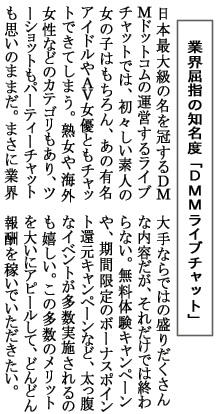 業界屈指の知名度「DMMライブチャット」
日本最大級の名を冠するDM
Mドットコムの運営するライブ
チャットでは、初々しい素人の
女の子はもちろん、あの有名
アイドルやAV女優ともチャッ
トできてしまう。熟女や海外
女性などのカテゴリもあり、ツ
ーショットもパーティーチャット
も思いのままだ。まさに業界
大手ならではの盛りだくさん
な内容だが、それだけでは終わ
らない。無料体験キャンペーン
や、期間限定のボーナスポイン
ト還元キャンペーンなど、太っ腹
なイベントが多数実施されるの
も嬉しい。この多数のメリット
を大いにアピールして、どんどん
報酬を稼いでいただきたい。